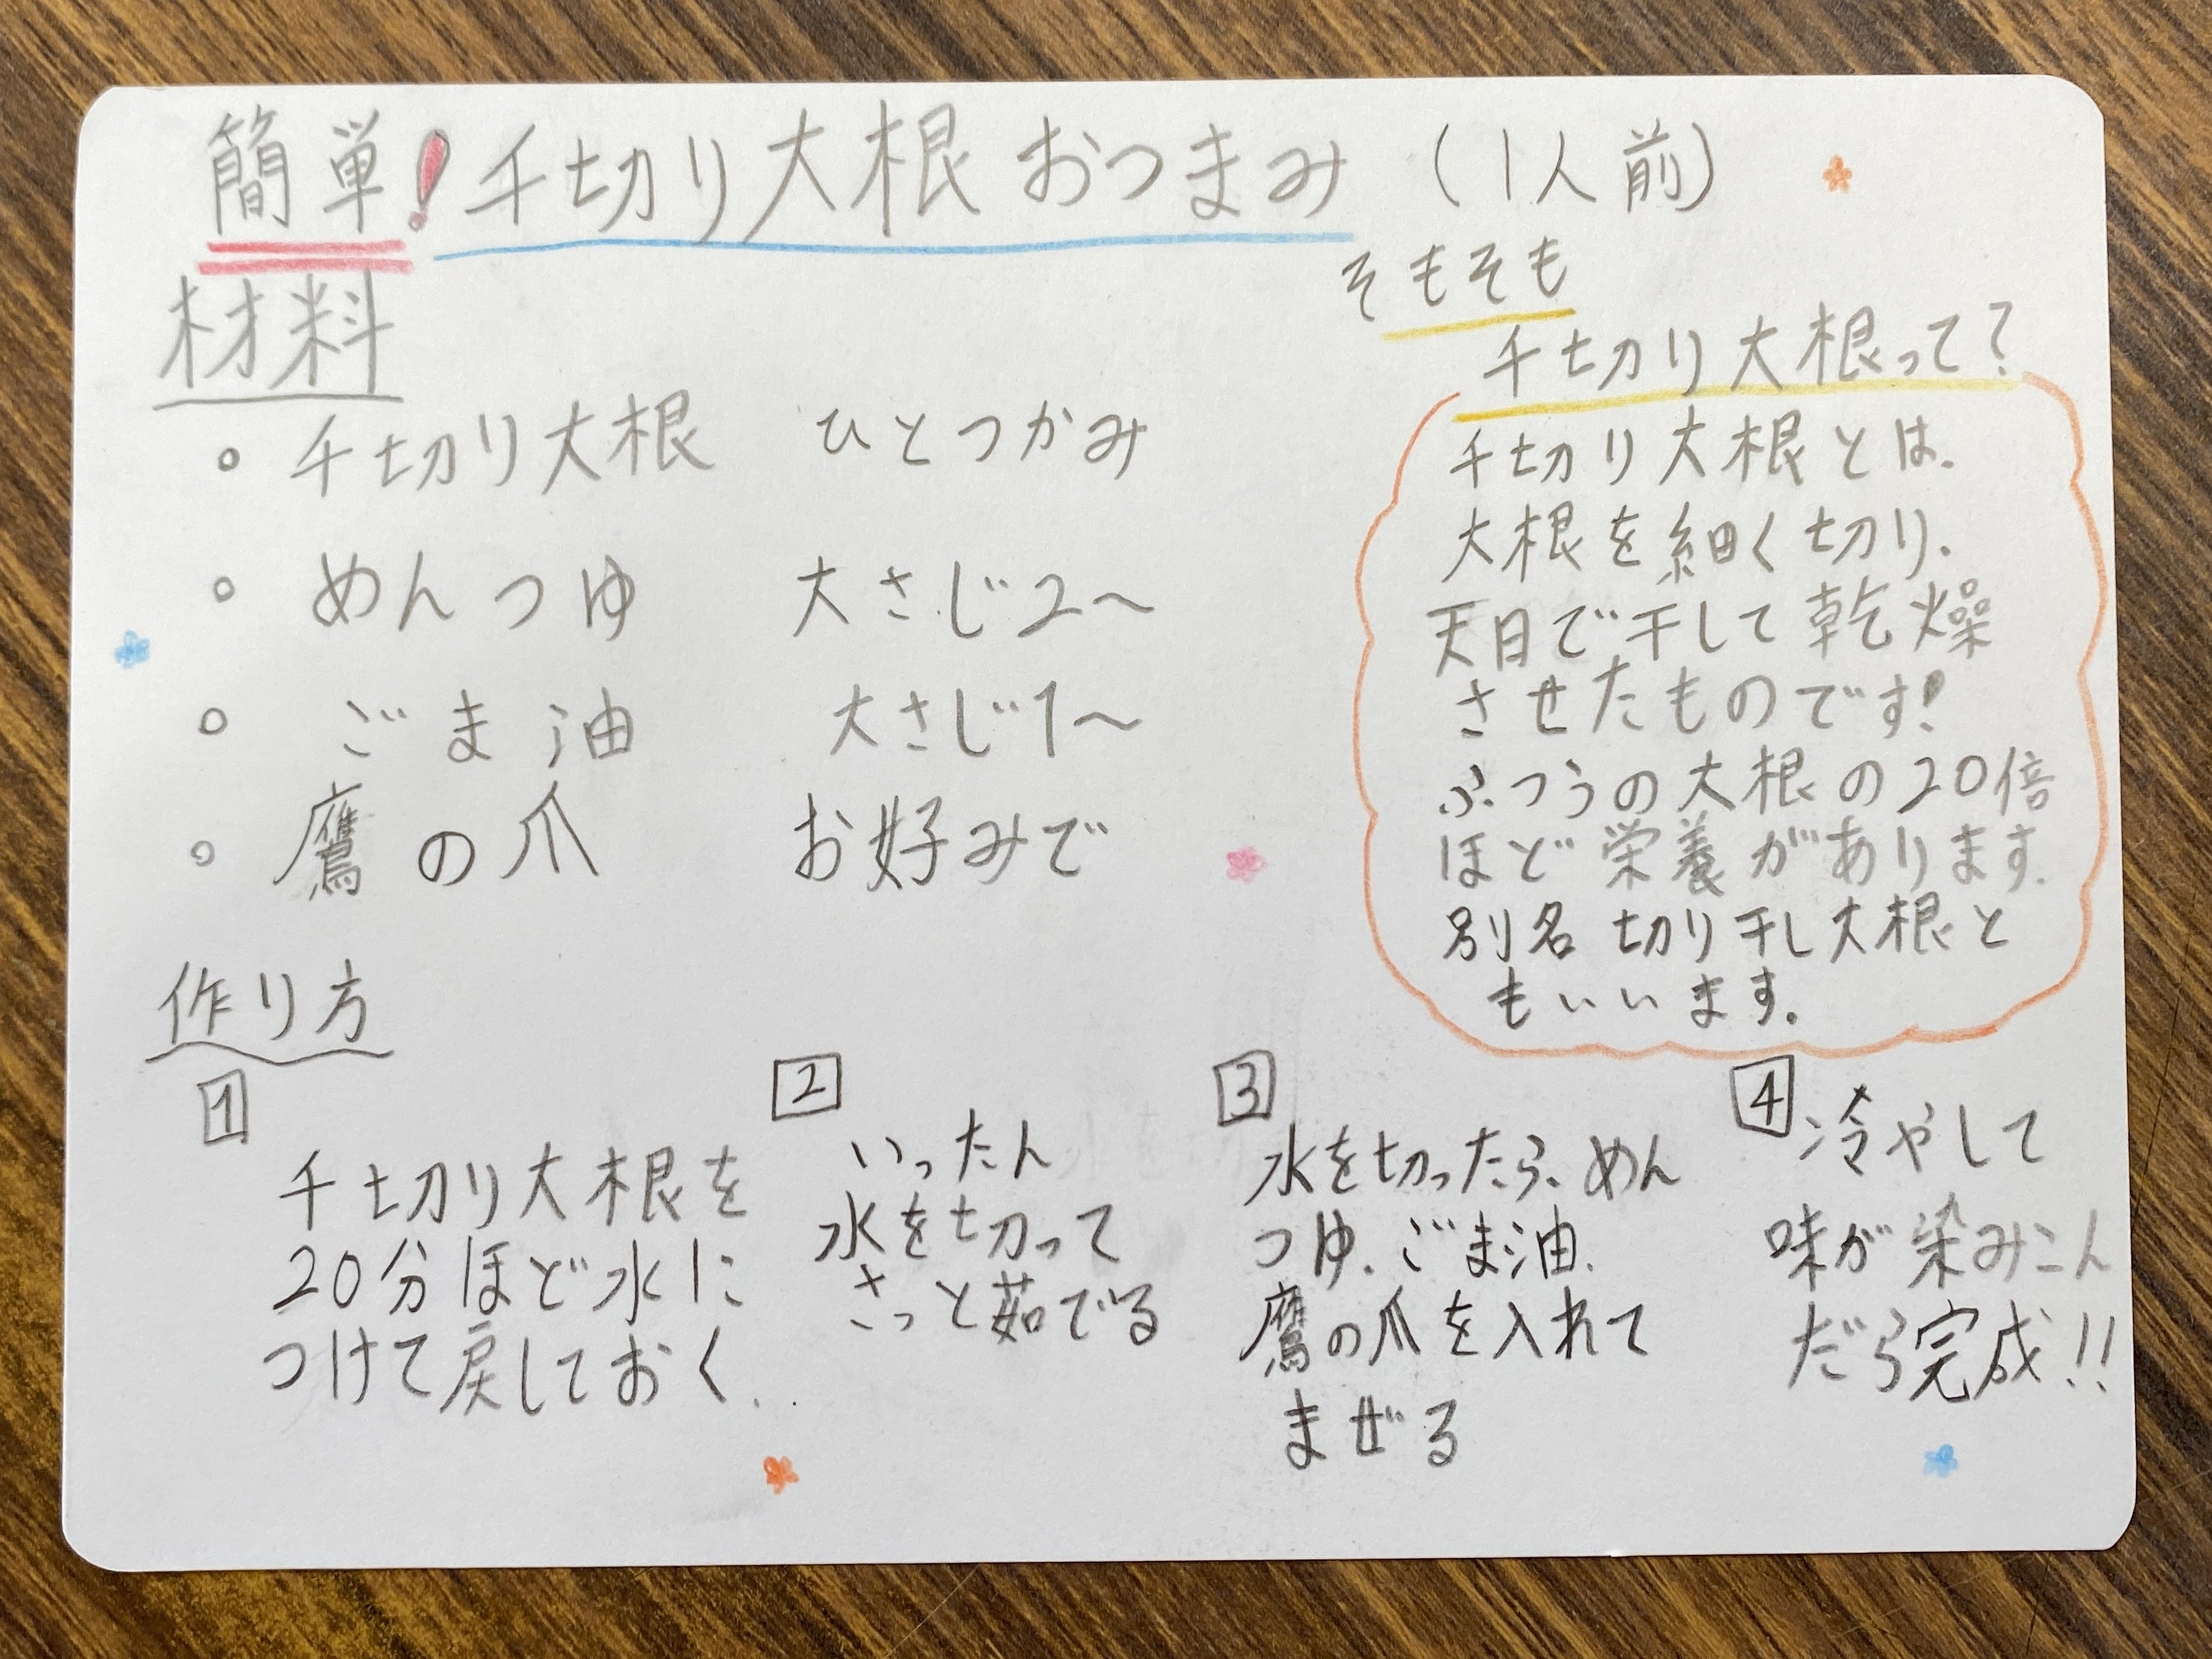 簡単!千切り大根おつまみ (1人前)
材料
○ 千切り大根 ひとつかみ
○ めんつゆ 大さじ2〜
○ ごま油 大さじ1〜
○ 鷹の爪 お好みで
そもそも
千切り大根って?
千切り大根とは、
大根を細く切り、
天日で干して乾燥
させたものです!
ふつうの大根の20倍
ほど栄養があります。
別名 切り干し大根と
もいいます。
作り方
1
千切り大根を
20分ほど水に
つけて戻しておく。
2
いったん
水を切って
さっと茹でる
3
水を切ったら、めん
つゆ、ごま油、
鷹の爪を入れて
まぜる
4 冷やして
味が染みこん
だら完成!!